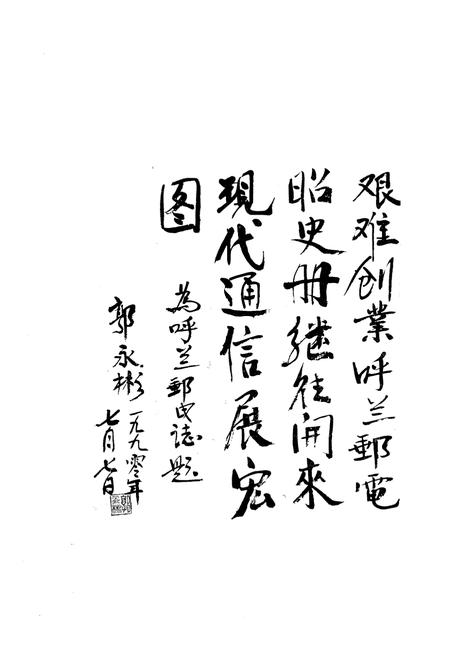 艰难创業呼兰郵電
昭史册继往開來
現代通信展宏
图
為呼兰郵电誌题
郭永彬一九九零年
七月七日